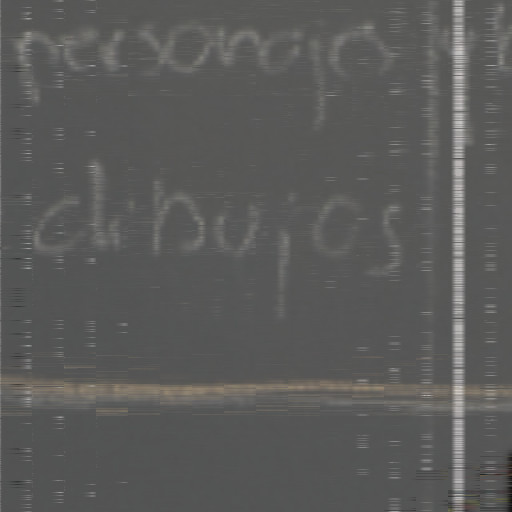 personajes
dibujos